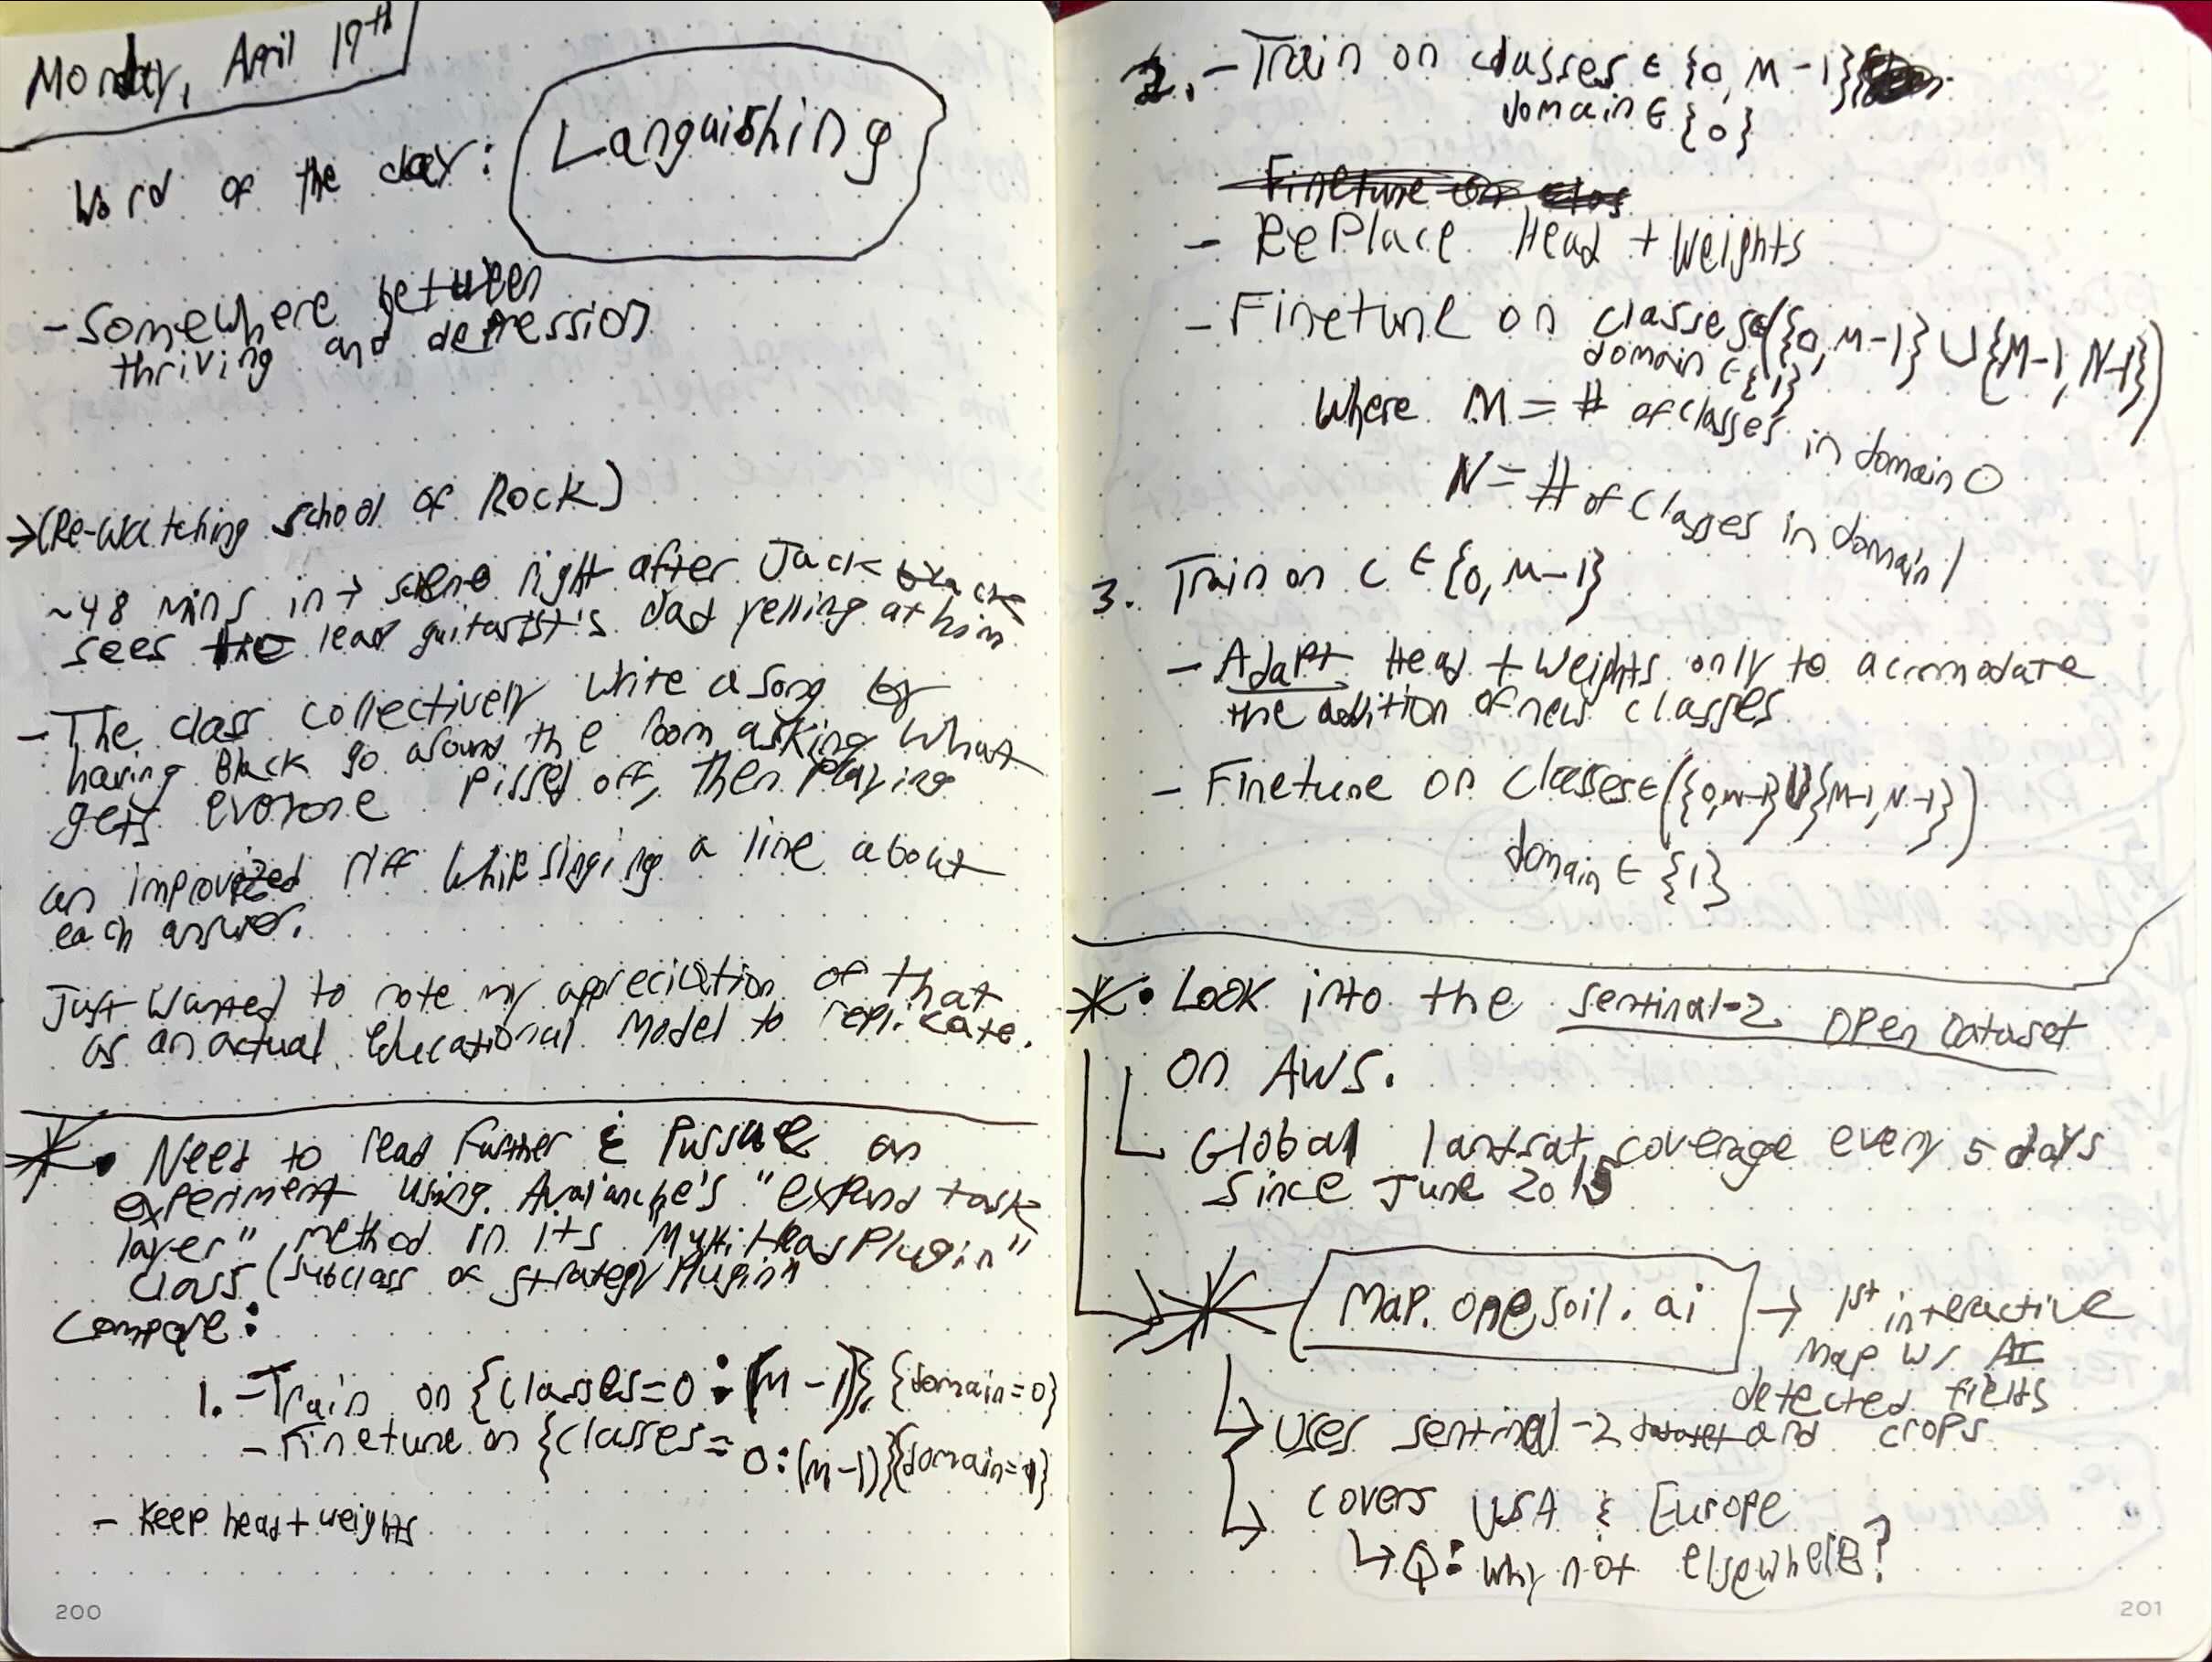 Monday, April 19th
Word of the day: Languishing
- Somewhere between
thriving and depression
→(Re-watching School of Rock)
~48 mins in → scene right after Jack Black
sees the lead guitarist's dad yelling at him
- The class collectively write a song by
having Black go around the room asking what
gets everone pissed off, then playing
an improvized riff while singing a line about
each answer.
Just wanted to note my appreciation of that
as an actual educational model to replicate.
* • Need to read further & Pursue an
experiment using Avalanche's "expand task
layer" method in its "MultiHeadPlugin"
class (subclass of StrategyPlugin)
Compare:
1. - Train on {classes=0:(M-1)}, {domain=0}
- Finetune on {classes=
0:(M-1)}{domain=1}
- Keep head + weights
200
2. - Train on classes ∈ {0, M-1}
domain ∈ {0}
Finetune on clas
- Replace Head + Weights
- Finetune on classes∈({0,M-1} ∪ {M-1, N-1})
domain ∈ {1}
Where M = # of classes in domain 0
N = # of classes in domain 1
3. Train on C ∈ {0, M-1}
- Adapt Head + Weights only to accomodate
the addition of new classes
- Finetune on classes∈({0,M-1}∪{M-1,N-1})
domain ∈ {1}
* • Look into the sentinal-2 open Dataset
on AWS.
Global landsat coverage every 5 days
since June 2015
* Map.onesoil.ai → 1st interactive
map w/ AI
detected fields
→ Uses sentinal-2 dataset and crops
→ Covers USA & Europe
↳ Q: why not elsewhere?
201